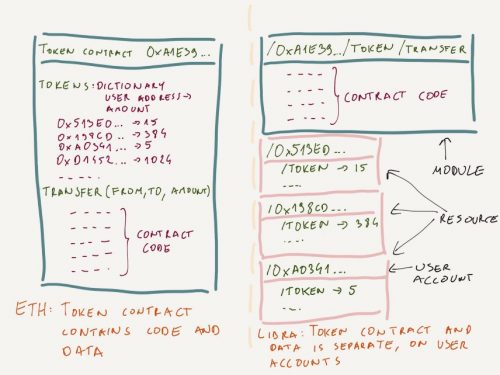 TOKEN CONTRACT 0xA1E39...
TOKENS: DICTIONARY
USER ADDRESS →
AMOUNT
0x513ED... → 15
0x138CD... → 384
0xA0341... → 5
0xD1452... → 1024
.....
TRANSFER (FROM, TO, AMOUNT)
CONTRACT
CODE
ETH: TOKEN CONTRACT
CONTAINS CODE AND
DATA
/0xA1E39.../TOKEN/TRANSFER
CONTRACT CODE
MODULE
/0x513ED...
/TOKEN → 15
....
/0x138CD...
/TOKEN → 384
....
RESOURCE
/0xA0341...
/TOKEN → 5
USER
ACCOUNT
LIBRA: TOKEN CONTRACT AND
DATA IS SEPARATE, ON USER
ACCOUNTS